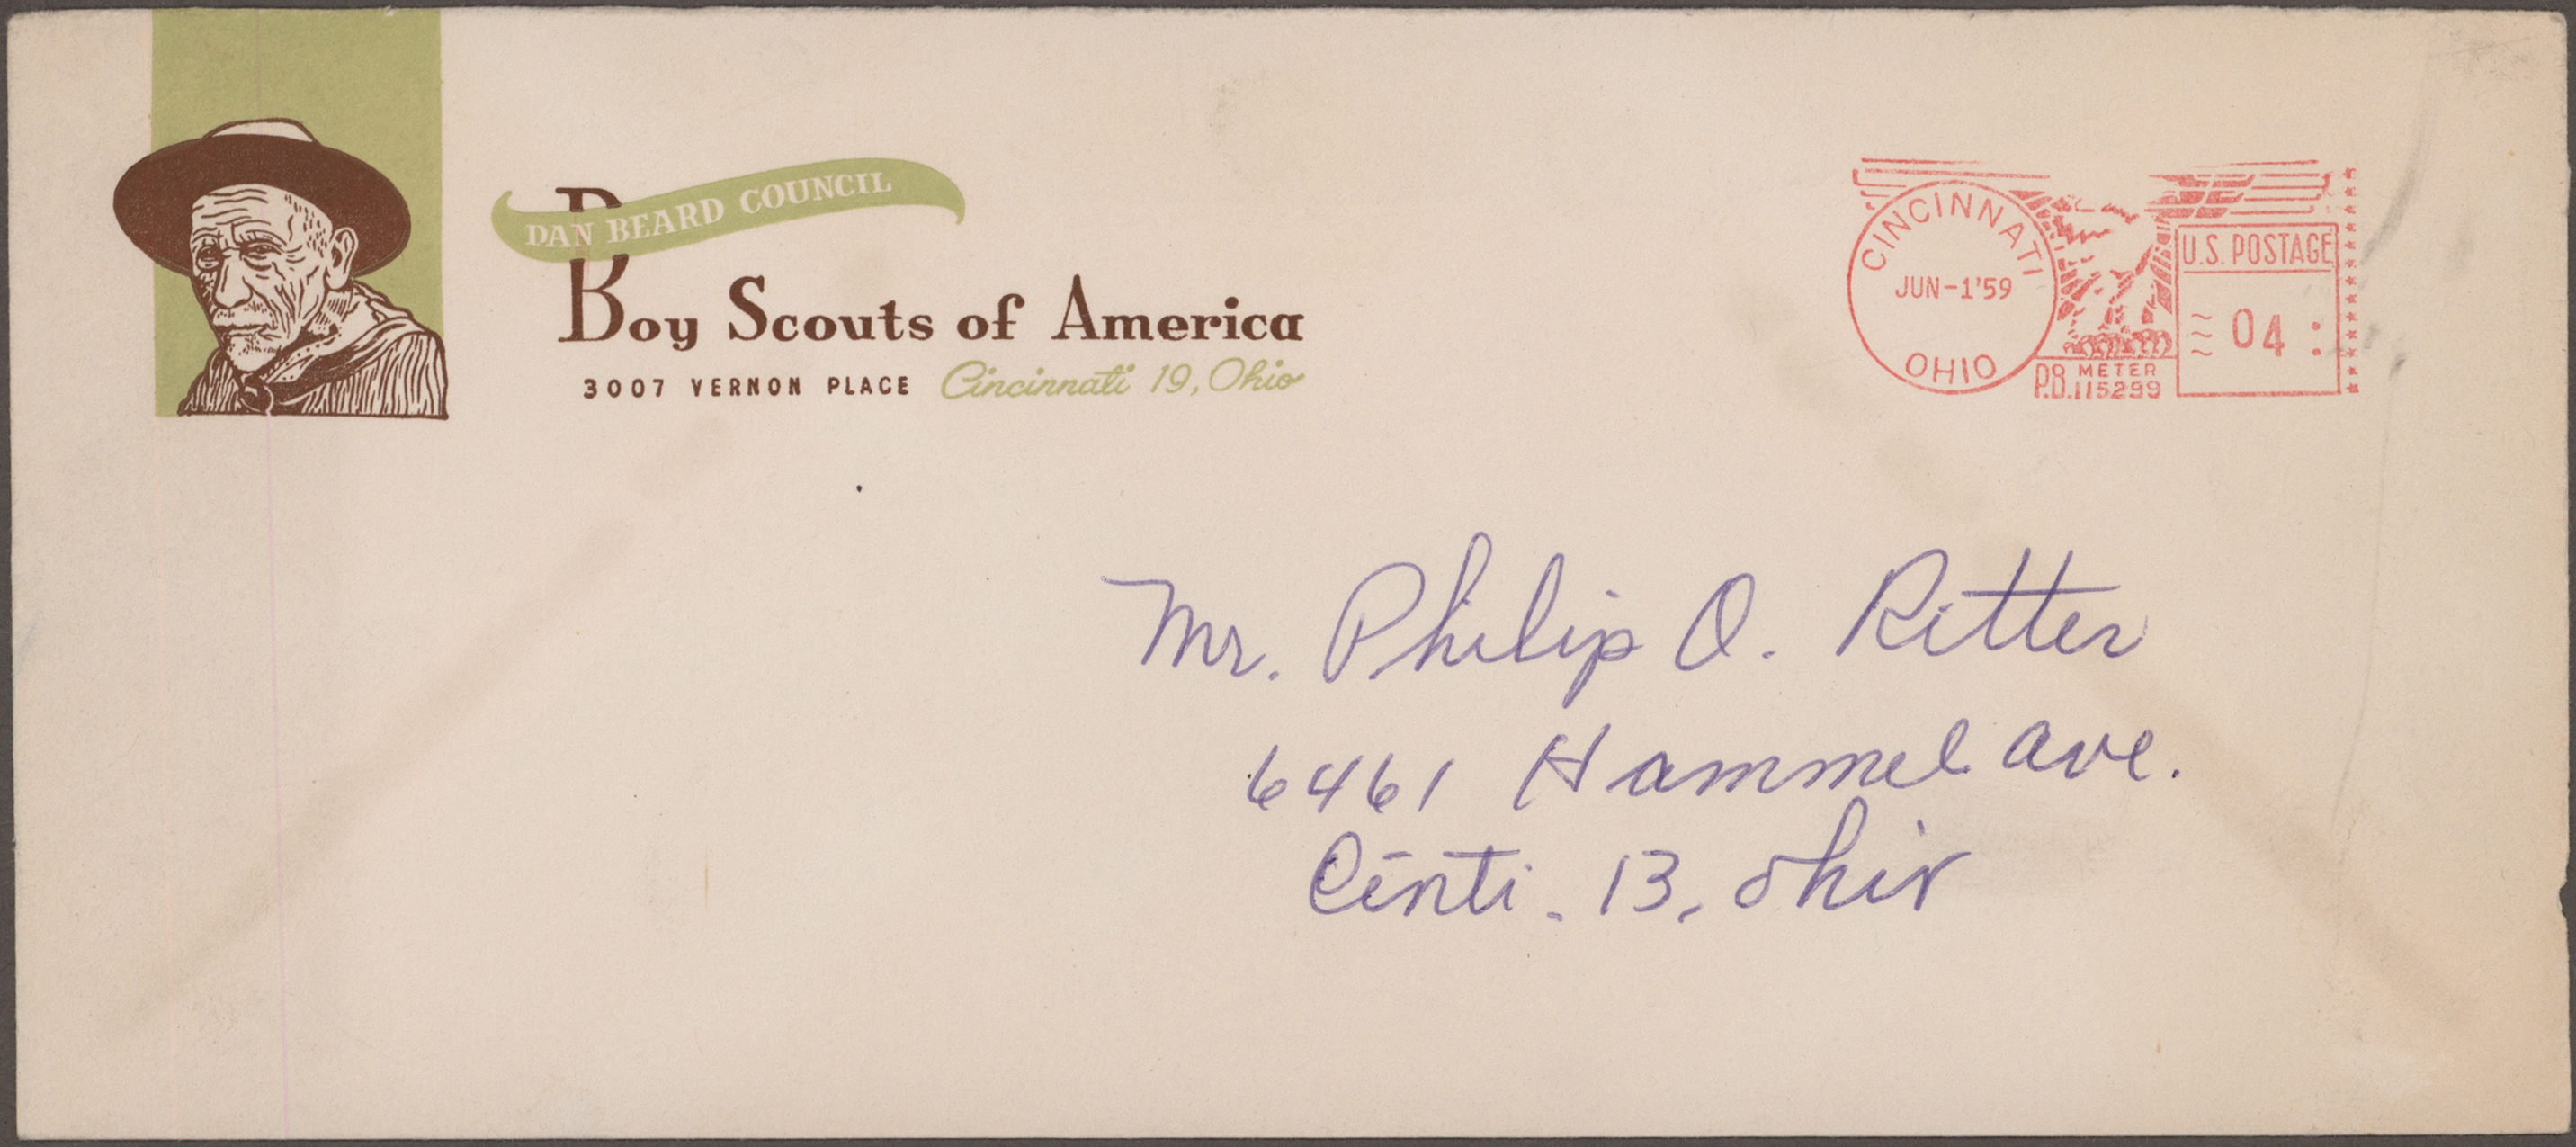 DAN BEARD COUNCIL
Boy Scouts of America
3007 VERNON PLACE Cincinnati 19, Ohio
CINCINNATI
JUN-1'59
OHIO
P.B. METER
115299
U.S. POSTAGE
04
Mr. Philip O. Ritter
6461 Hammel Ave.
Cinti. 13, Ohio